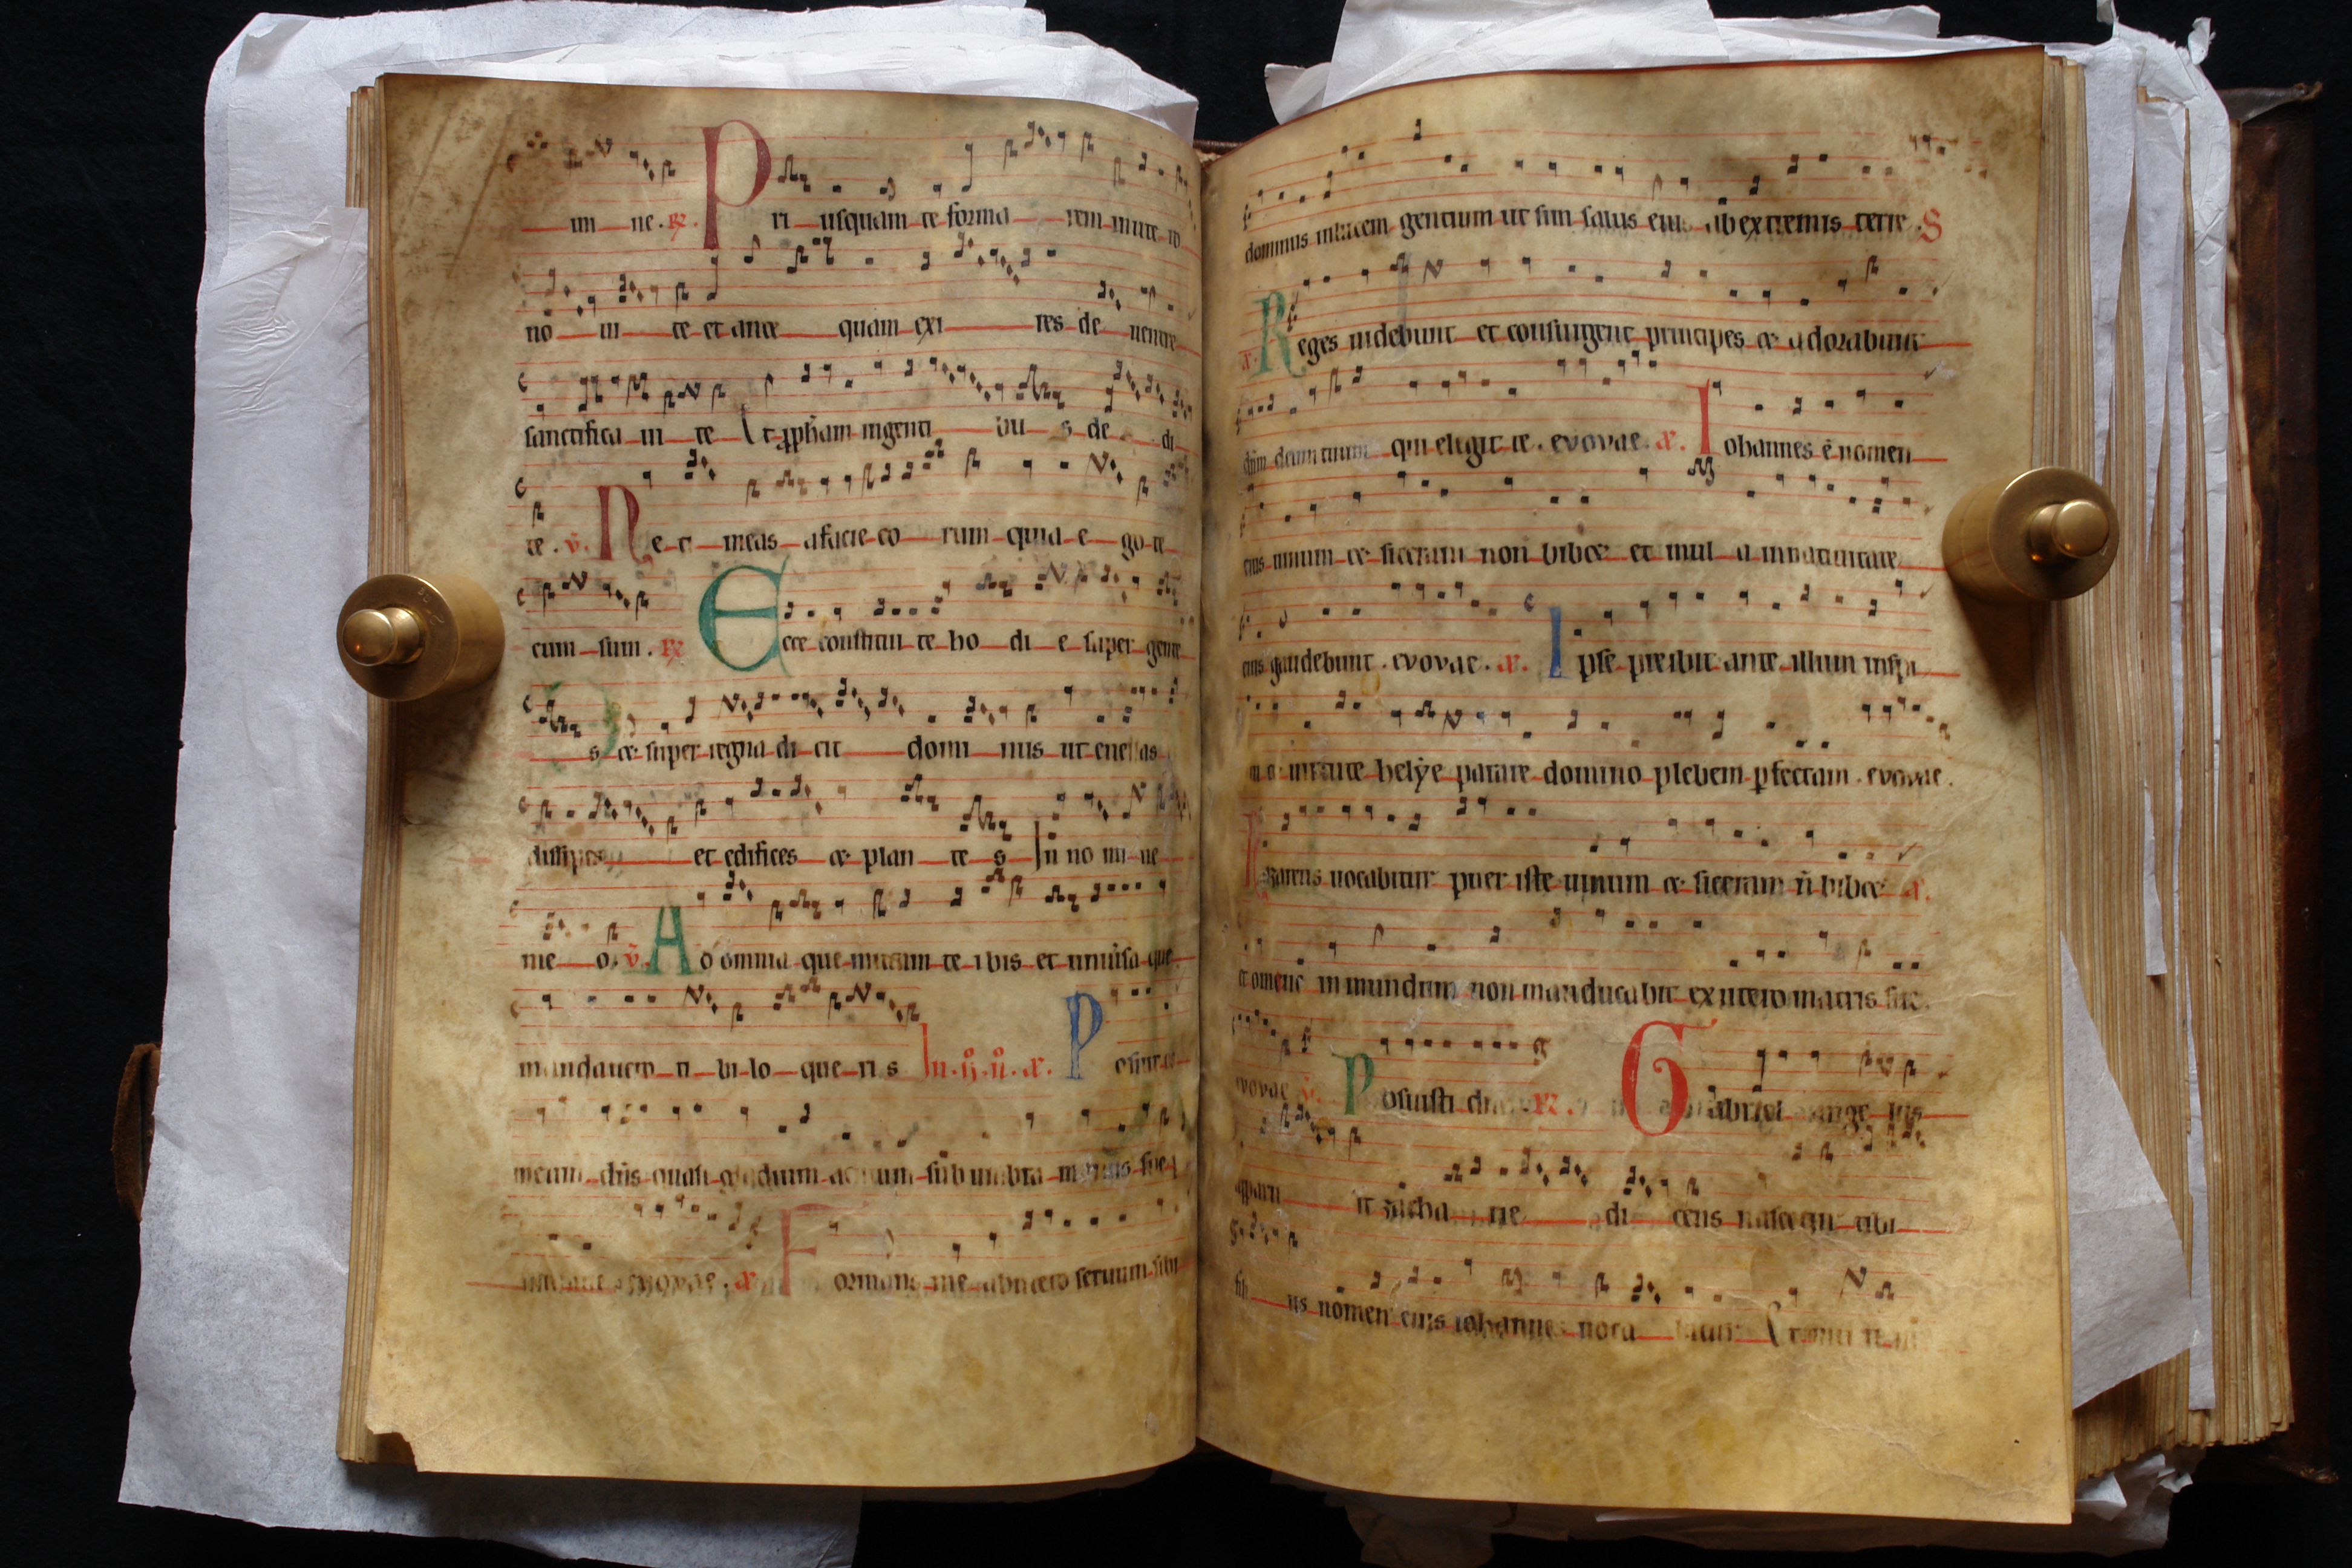 mi ne. R. Pri usquam te forma rem inute ro
no ui te et ante quam exi res de uentre
sanctifica ui te Et ꝓpham ingenti bu s de di
te. V. Ne ti meas afacie eo rum quia e go te
cum sum. R. Ecce constitui te ho di e super gente
s et super regna di cit domi nus ut euellas
dissipes et edifices et plan te s In no mi ne
me o. V. Ad omnia que mittam te ibis et uniuisa que
mandauero ti bi lo que ri s In. iij. ń. a. Posuit os
meum dns quasi gladium acutum sub umbra manus sue
euovae. a. Formans me abutero seruum sibi
dominus inlucem gentium ut sim salus eius ab extremis terre. S
a. Reges uidebunt et consurgent principes et adorabunt
dnm deum tuum qui elegit te. evovae. a. Iohannes ē nomen
eius uinum et siceram non bibet et mul ti innatiuitate
eius gaudebunt. evovae. a. Ipse preibit ante illum inspi
ritu et uirtute helẏe parare domino plebem ꝑfectam. evovae.
Nazareus uocabitur puer iste uinum et siceram ñ bibet a.
et omne inmundum non manducabit exutero matris sue
evovae V. Posuisti dne. R. Gabriel ange lus
apparu it zacha rie di cens nascetur tibi
fili us nomen eius iohannes uoca bitur Et multi in